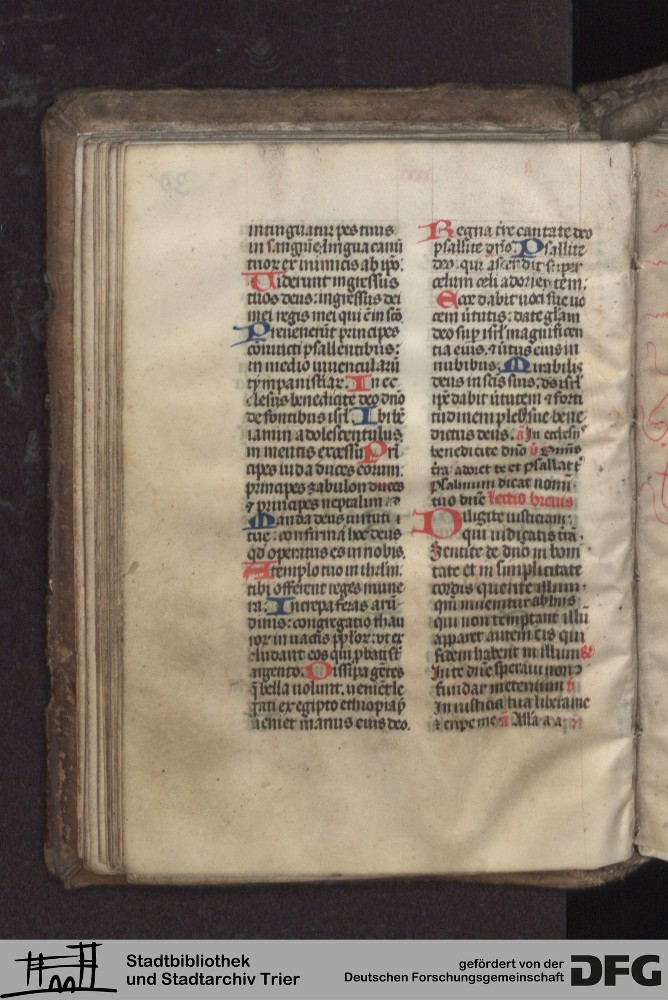 intinguatur pes tuus
in sanguīe: lingua canū
tuor ex inimicis ab ip̄o.
Viderunt ingressus
tuos deus: ingressus dei
mei regis mei qui ē in sc̄o
Preuenerūt principes
coniūcti psallentibus:
in medio iuuencularū
tympanistriar. In ec
clesijs benedicite deo dn̄o
de fontibus isrl̄. Ibi bē
iamin adolescentulus
in mentis excessu Pri
cipes iuda duces eorum:
principes zabulon duces
⁊ principes neptalim
Manda deus uirtuti t
tue: confirma hoc deus
qd̄ operatus es in nobis.
A templo tuo in ihrlm̄.
tibi offerent reges mune
ra: Increpa feras arū
dinis: congregatio thau
ror in uaccis pp̄lor: vt ex
cludant eos qui ꝓbati st̄
argento. Dissipa gētes
q̄ bella uolunt. uenient le
gati ex egipto ethiopia p̄
ueniet manus eius deo.
Regna tr̄e cantate deo
psallite dn̄o. Psallite
deo. qui ascendit super
celum celi ad orientem.
Ecce dabit uoci sue uo
cem ūtutis: date glām
deo sup isrl̄ magnificen
tia eius. ⁊ ūtus eius in
nubibus. Mirabilis
deus in scīs suis: ds̄ isrl̄
ip̄e dabit ūtutem ⁊ forti
tudinem plebi sue bene
dictus deus. a In ecclesijs
benedicite dn̄o v Omnis
tr̄a adoret te et psallat t̄
psalmum dicat nomi
tuo dn̄e lectio breuis
Diligite iusticiam:
qui iudicatis tr̄a.
Sentite de dn̄o in boni
tate et in simplicitate
cordis querite illum.
qm̄ inuenitur ab hiis
qui non temptant illū
apparet autem eis qui
fidem habent in illum
In te dn̄e speraui non
fundar in eternum
In iusticia tua libera me
⁊ eripe me a Alla a a
Stadtbibliothek
und Stadtarchiv Trier
gefördert von der
Deutschen Forschungsgemeinschaft
DFG